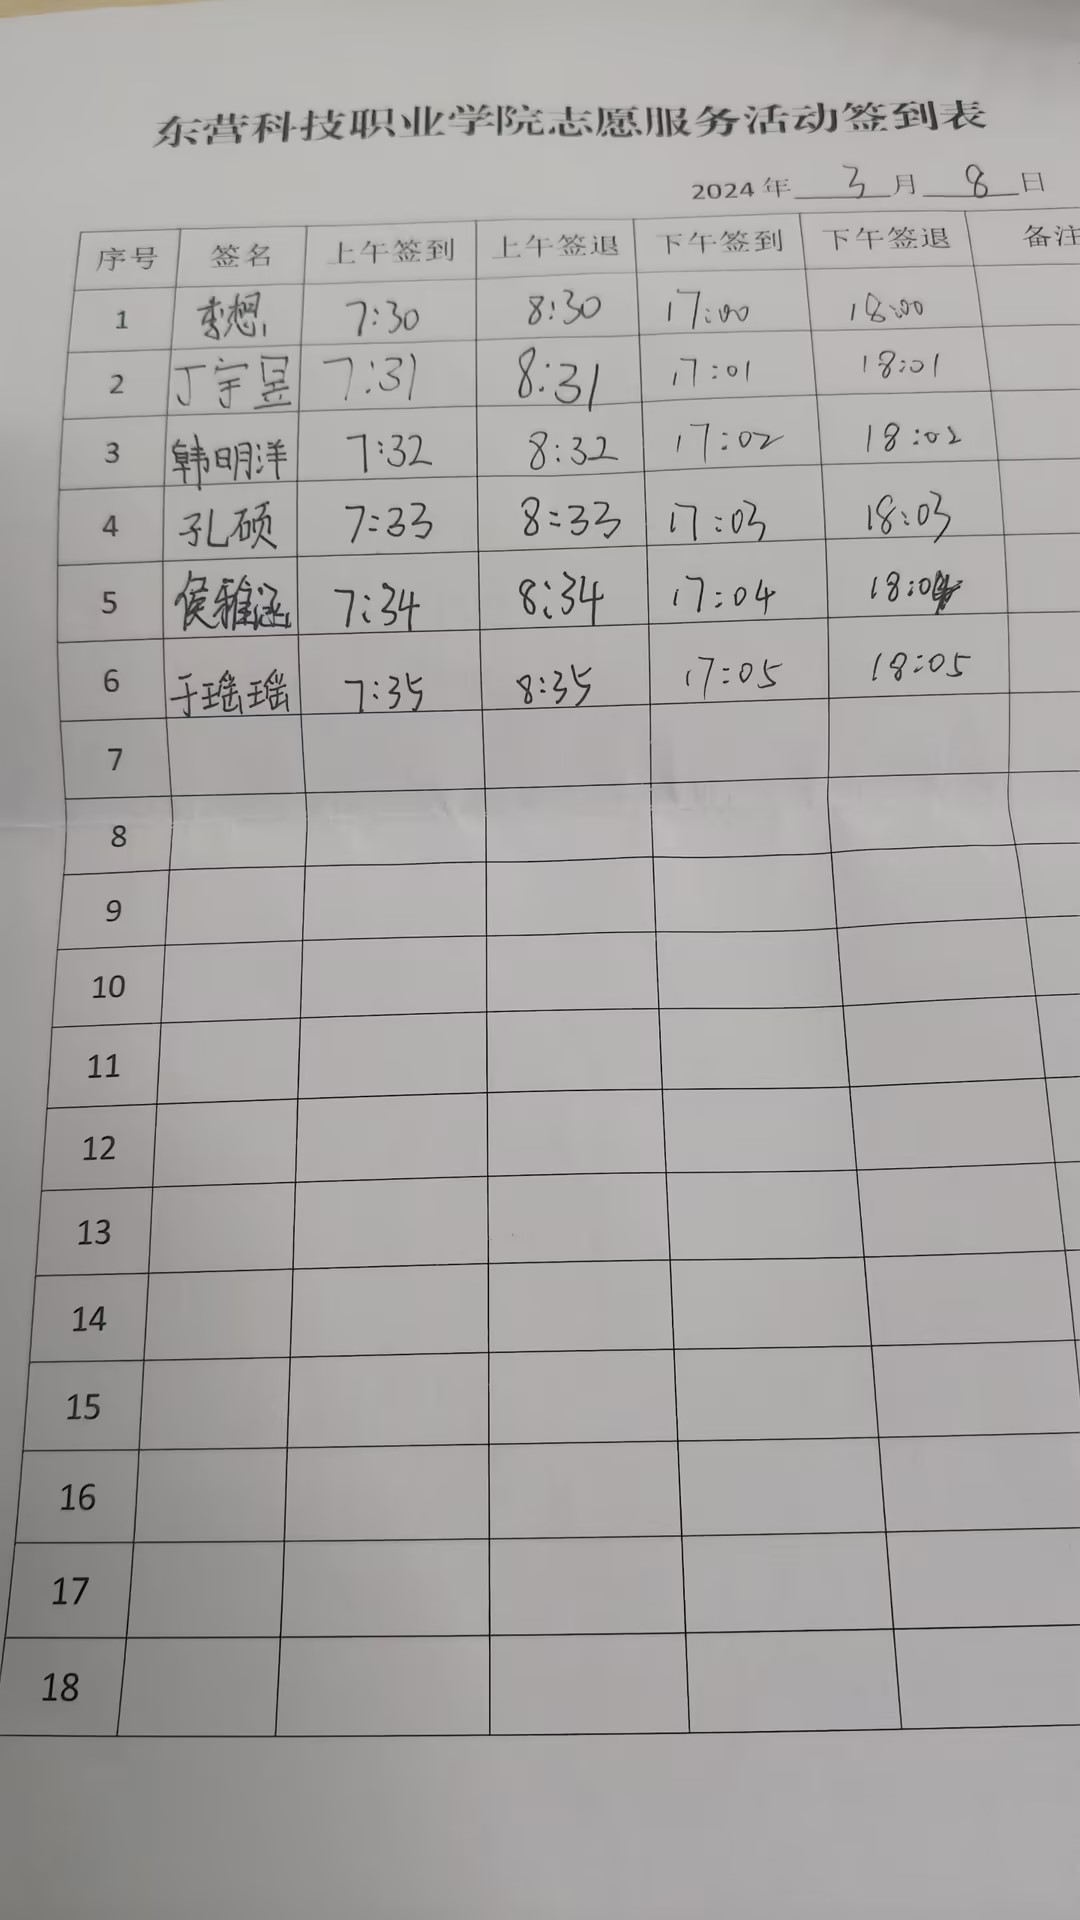 东营科技职业学院志愿服务活动签到表
2024 年 3 月 8 日
序号 签名 上午签到 上午签退 下午签到 下午签退 备注
1 李想 7:30 8:30 17:00 18:00
2 丁宇昱 7:31 8:31 17:01 18:01
3 韩明洋 7:32 8:32 17:02 18:02
4 孔硕 7:33 8:33 17:03 18:03
5 侯雅涵 7:34 8:34 17:04 18:04
6 于瑶瑶 7:35 8:35 17:05 18:05
7
8
9
10
11
12
13
14
15
16
17
18